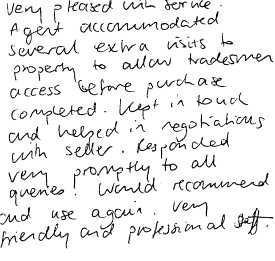 very pleased with service.
Agent accommodated
several extra visits to
property to allow tradesmen
access before purchase
completed. Kept in touch
and helped in negotiations
with seller. Responded
very promptly to all
queries! Would recommend
and use again. Very
friendly and professional staff.